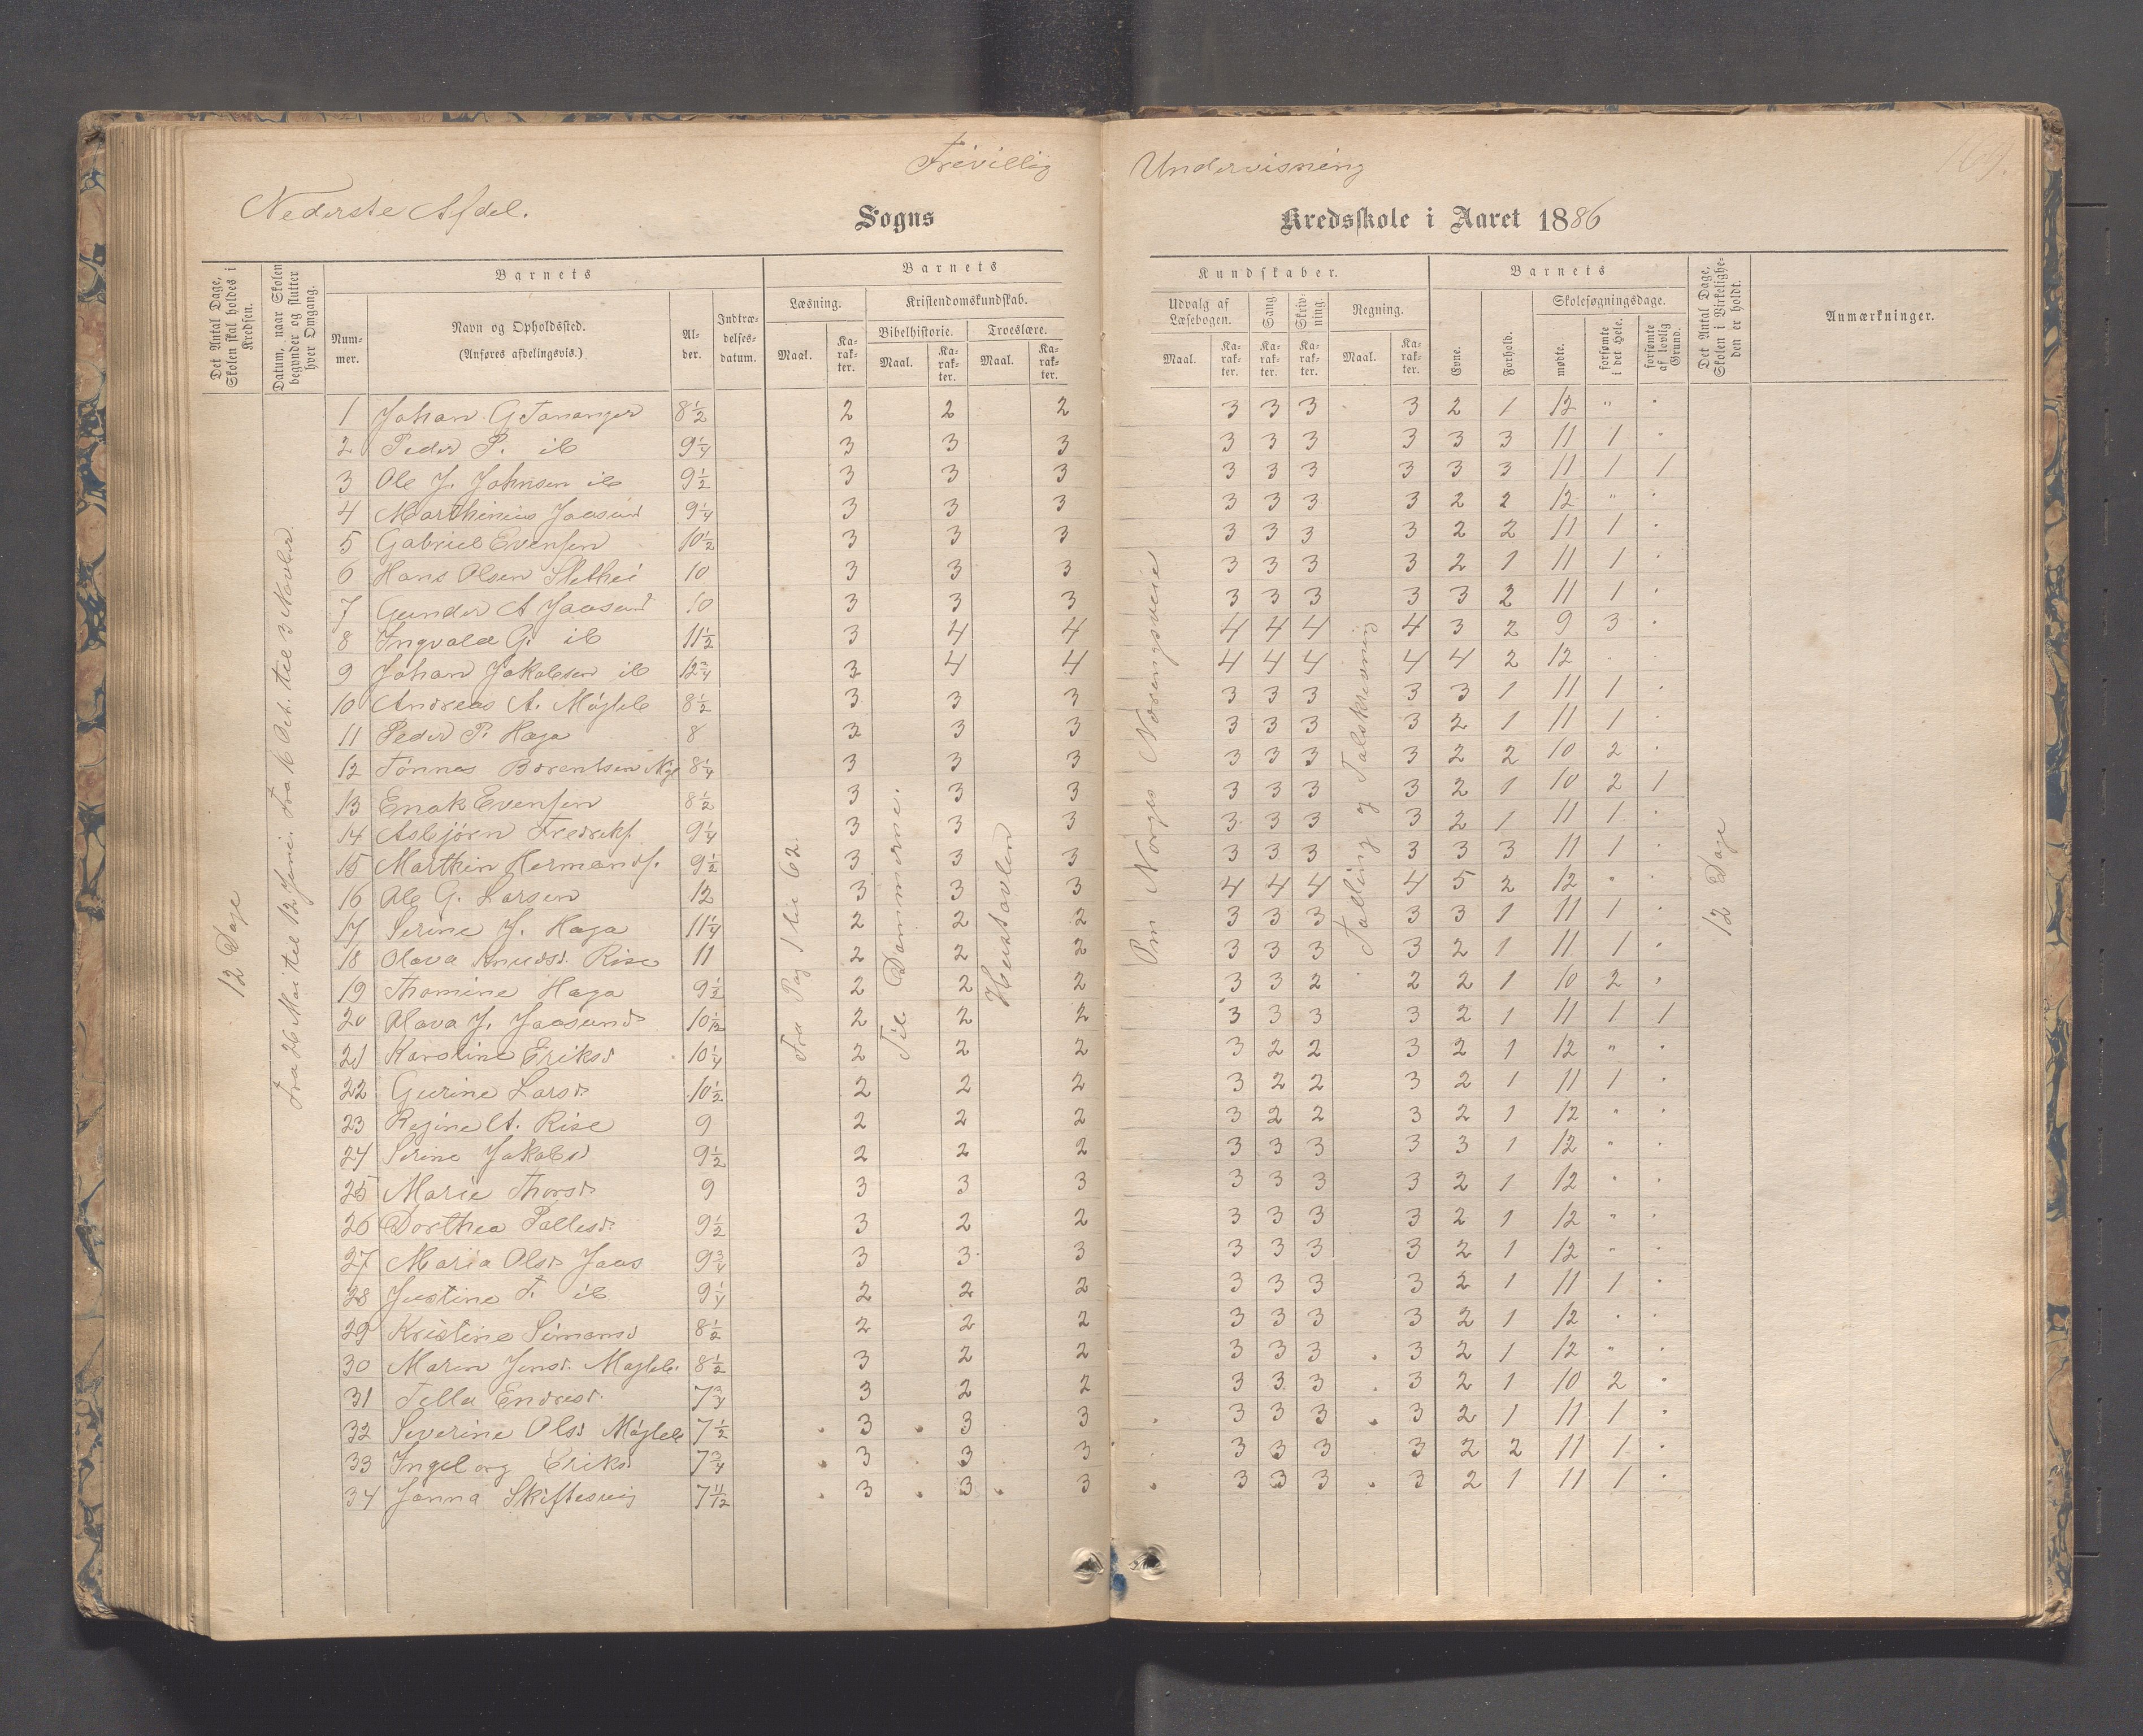 Frivillig Undervisning
169.
Nederste Afdel. Sogns Kredsskole i Aaret 1886
Det Antal Dage, Skolen skal holdes i Kredsen.
Datum, naar Skolen begynder og slutter hver Omgang.
Barnets
Nummer.
Navn og Opholdssted. (Anføres afdelingsvis.)
Alder.
Indtrædelsesdatum.
Barnets Kundskaber.
Læsning. Maal. Karakter.
Kristendomskundskab.
Bibelhistorie. Maal. Karakter.
Troeslære. Maal. Karakter.
Udvalg af Læsebogen. Maal. Karakter.
Sang. Karakter.
Skrivning. Karakter.
Regning. Maal. Karakter.
Barnets
Evne.
Forhold.
Skolesøgningsdage.
mødte.
forsømte i det Hele.
forsømte af lovlig Grund.
Det Antal Dage, Skolen i Virkeligheden er holdt.
Anmærkninger.
12 Dage
Fra 26 Mai til 12 Juni. Fra 16 Oct. til 3 Novbr.
Fra Pag 1 til 62
Til Dommerne.
Hustavlen
Om Norges Næringsveie
Talling og Talskrivning
12 Dage
1 Johan G Tananger 8 1/2 2 2 2 3 3 3 3 2 1 12 " "
2 Peder P. ib 9 1/4 3 3 3 3 3 3 3 3 3 11 1 "
3 Ole J. Johnsen ib 9 1/2 3 3 3 3 3 3 3 3 3 11 1 1
4 Marthinius Jaasund 9 1/4 3 3 3 3 3 3 3 2 2 12 " "
5 Gabriel Evensen 10 1/2 3 3 3 3 3 3 3 2 2 11 1 "
6 Hans Olsen Slethei 10 3 3 3 3 3 3 3 2 1 11 1 "
7 Gunder A Jaasund 10 3 3 3 3 3 3 3 3 2 11 1 "
8 Ingvald G. ib 11 1/2 3 4 4 4 4 4 4 3 2 9 3 "
9 Johan Jakobsen ib 12 3/4 3 4 4 4 4 4 4 4 2 12 " "
10 Andreas A. Møjleb 8 1/2 3 3 3 3 3 3 3 3 1 11 1 "
11 Peder P. Haga 8 3 3 3 3 3 3 3 2 1 11 1 "
12 Tønnes Berentsen Mjl 8 1/4 3 3 3 3 3 3 3 2 2 10 2 "
13 Enok Evensen 8 1/2 3 3 3 3 3 3 3 2 1 10 2 1
14 Asbjørn Fredriks. 9 1/4 3 3 3 3 3 3 3 2 1 11 1 "
15 Marthin Hermands. 9 1/2 3 3 3 3 3 3 3 3 3 11 1 "
16 Ole G. Larsen 12 3 3 3 4 4 4 4 5 2 12 " "
17 Serine J. Haga 11 1/4 2 2 2 3 3 3 3 3 1 11 1 "
18 Olava Knudsd. Rise 11 2 2 2 3 3 3 3 2 1 11 1 "
19 Thomine Haga 9 1/2 2 2 2 3 3 2 2 2 1 10 2 "
20 Olava J. Jaasund 10 1/12 2 2 2 3 3 3 3 2 1 11 1 1
21 Karoline Eriksd 10 1/4 2 2 2 3 2 2 3 2 1 12 " "
22 Gurine Larsd. 10 1/2 2 2 2 3 2 2 3 2 1 11 1 "
23 Regine A. Rise 9 2 2 2 3 2 2 3 2 1 12 " "
24 Serine Jakobsd 9 1/2 2 2 2 3 3 3 3 3 1 12 " "
25 Marie Thorsd. 9 3 3 3 3 3 3 3 2 1 12 " "
26 Dorthea Pallesd. 9 1/2 3 2 2 3 3 3 3 2 1 12 " "
27 Maria Olsd. Jaas 9 3/4 3 3 3 3 3 3 3 2 1 12 " "
28 Justine F. ib 9 1/4 2 2 2 3 3 3 3 2 1 11 1 "
29 Kristine Simonsd 8 1/2 2 2 2 3 3 3 3 2 1 12 " "
30 Maren Jensd. Møjleb. 8 1/2 3 2 2 3 3 3 3 2 1 12 " "
31 Tella Endresd. 7 3/4 3 2 2 3 3 3 3 2 1 10 2 "
32 Severine Olsd Møjleb 7 1/2 3 3 3 3 3 3 3 2 1 11 1 "
33 Ingeborg Eriksd 7 3/4 3 3 3 3 3 3 3 2 2 11 1 "
34 Janna Skiftesvig 7 11/12 3 3 3 3 3 3 3 2 1 11 1 "